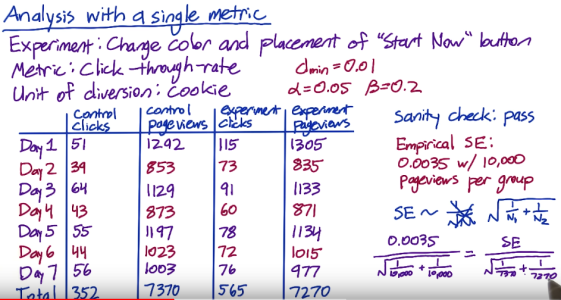 Analysis with a single metric
Experiment: Change color and placement of "Start Now" button
Metric: Click-through-rate dmin = 0.01
Unit of diversion: Cookie α=0.05 β=0.2
Control clicks | Control pageviews | Experiment clicks | Experiment Pageviews
Day 1 51 1292 115 1305
Day 2 39 853 73 835
Day 3 64 1129 91 1133
Day 4 43 873 60 871
Day 5 55 1197 78 1134
Day 6 44 1023 72 1015
Day 7 56 1003 76 977
Total 352 7370 565 7270
Sanity check: pass
Empirical SE:
0.0035 w/ 10,000
Pageviews per group
SE ~ √(1/N₁ + 1/N₂)
0.0035 / √(1/10,000 + 1/10,000) = SE / √(1/7370 + 1/7270)